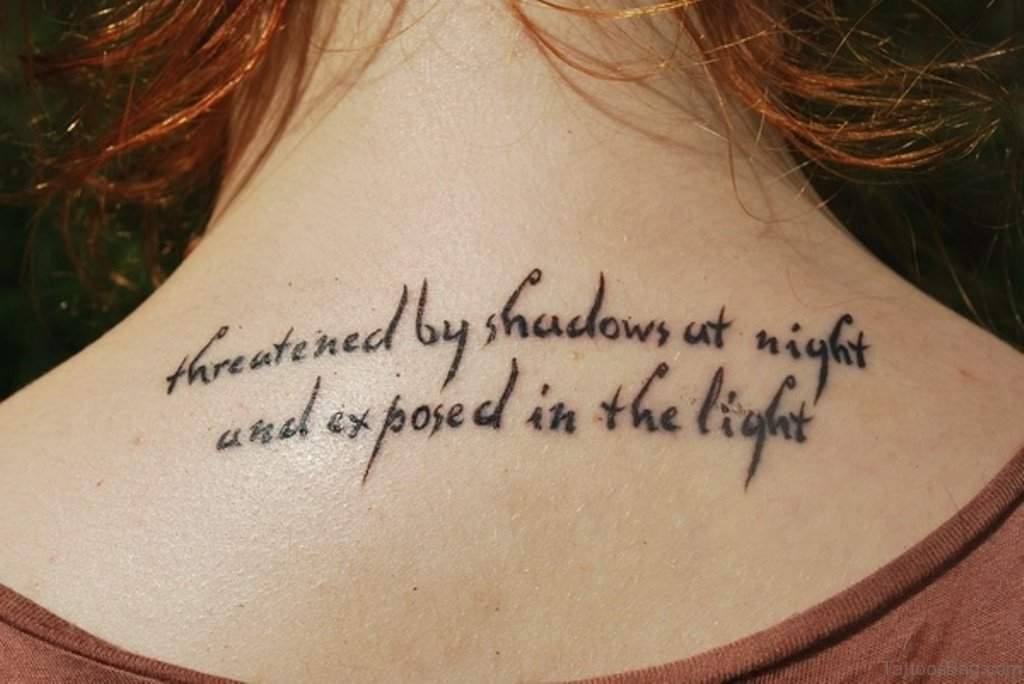 threatened by shadows at night
and exposed in the light
TattoosBag.com